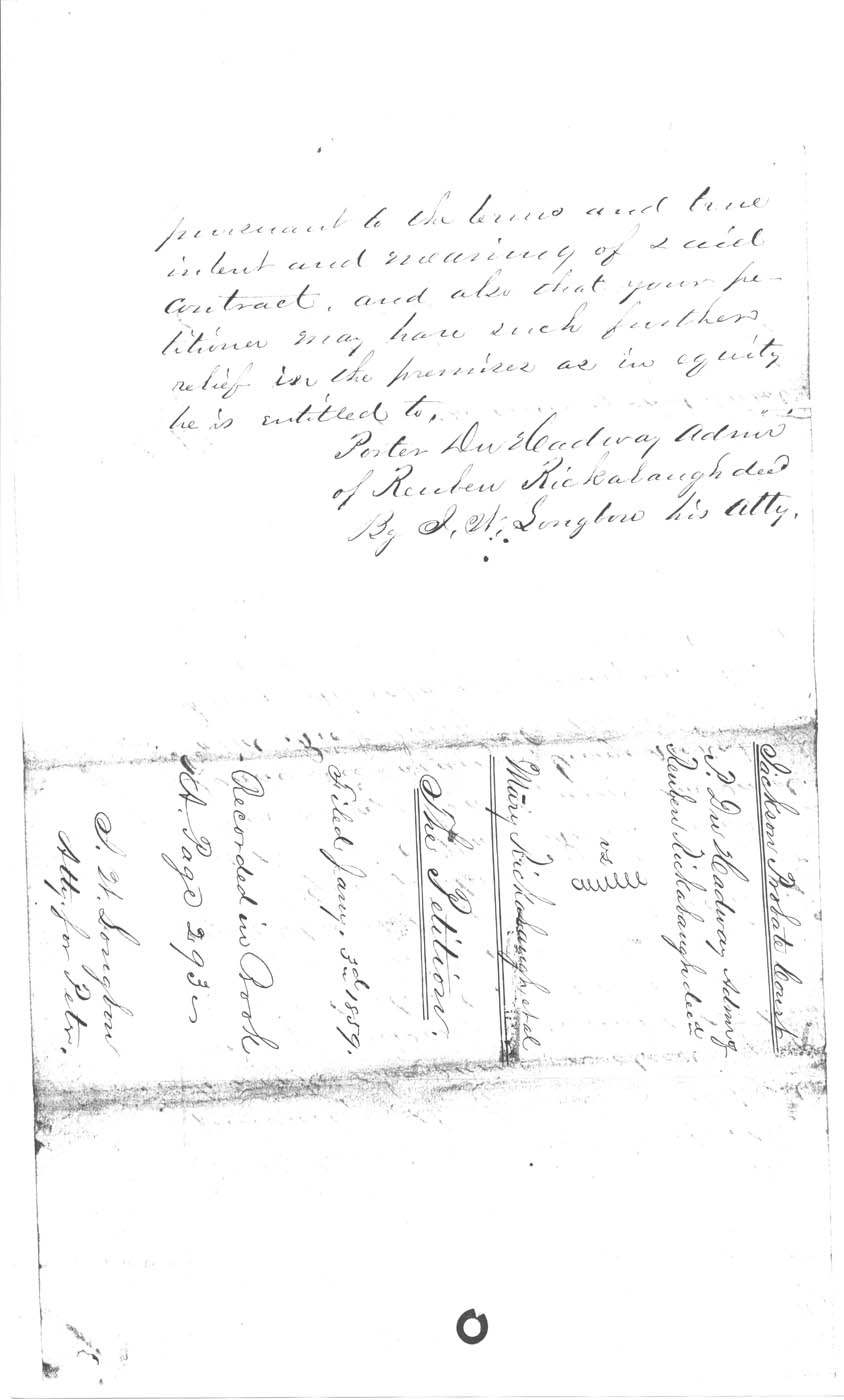 pursuant to the terms and true
intent and meaning of said
contract, and also that your pe-
titioner may have such further
relief in the premises as in equity
he is entitled to.
Porter Du Hadway Admr
of Reuben Rickabaugh decd
By I. W. Longbon his Atty.
Jackson Probate Court
P. Du Hadway Admr of
Reuben Rickabaugh decd
vs
Mary Rickabaugh et al
The Petition.
Filed Jany. 3d 1859.
Recorded in Book
A. Page 293
I. W. Longbon
Atty for Petr.